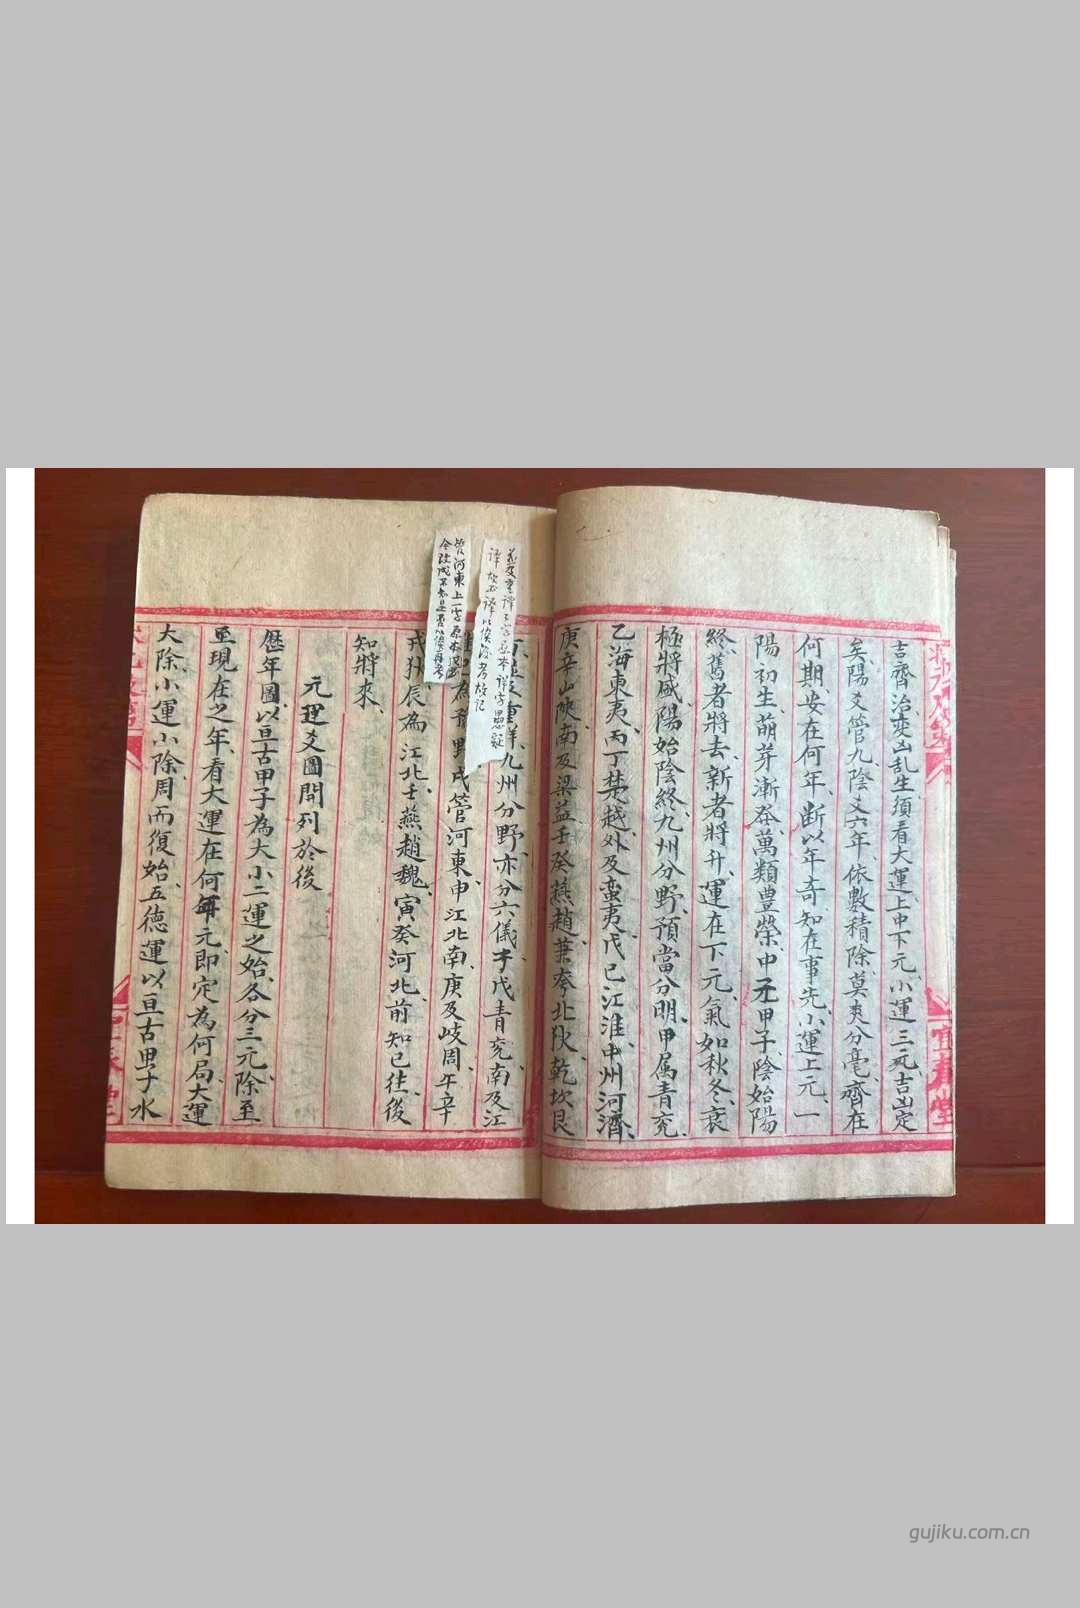 吉齊治变凶乱生須看大運上中下元、小運三元吉凶定
矣、陽爻管九陰爻六年、依數積除莫爽分毫、齊在
何期、安在何年、断以年奇知在事先、小運上元、一
陽初生、萌芽漸發、萬類豊榮、中元甲子、陰始陽
終、舊者將去、新者將升、運在下元、氣如秋冬、衰
極將盛、陽始陰終、九州分野、預當分明、甲属青兖、
乙海東夷、丙丁楚越、外及蛮夷、戊己江淮、中州河濟、
庚辛山陝、南及梁益、壬癸燕趙、兼夸北狄、乾坎艮
九州分野、亦分六儀、子戊青兖、南及江
野、戌管河東、申江北南、庚及岐周、午辛
戎狄、辰為江北、壬燕趙魏、寅癸河北、前知已往、後
知將來、
元運爻圖開列於後
歷年圖、以亘古甲子為大小二運之始、各分三元、除至
至現在之年、看大運在何年元、即定為何局、大運
大除、小運小除、周而復始、五德運以亘古甲子水
管河東上一字原本
宜春堂
gujiku.com.cn